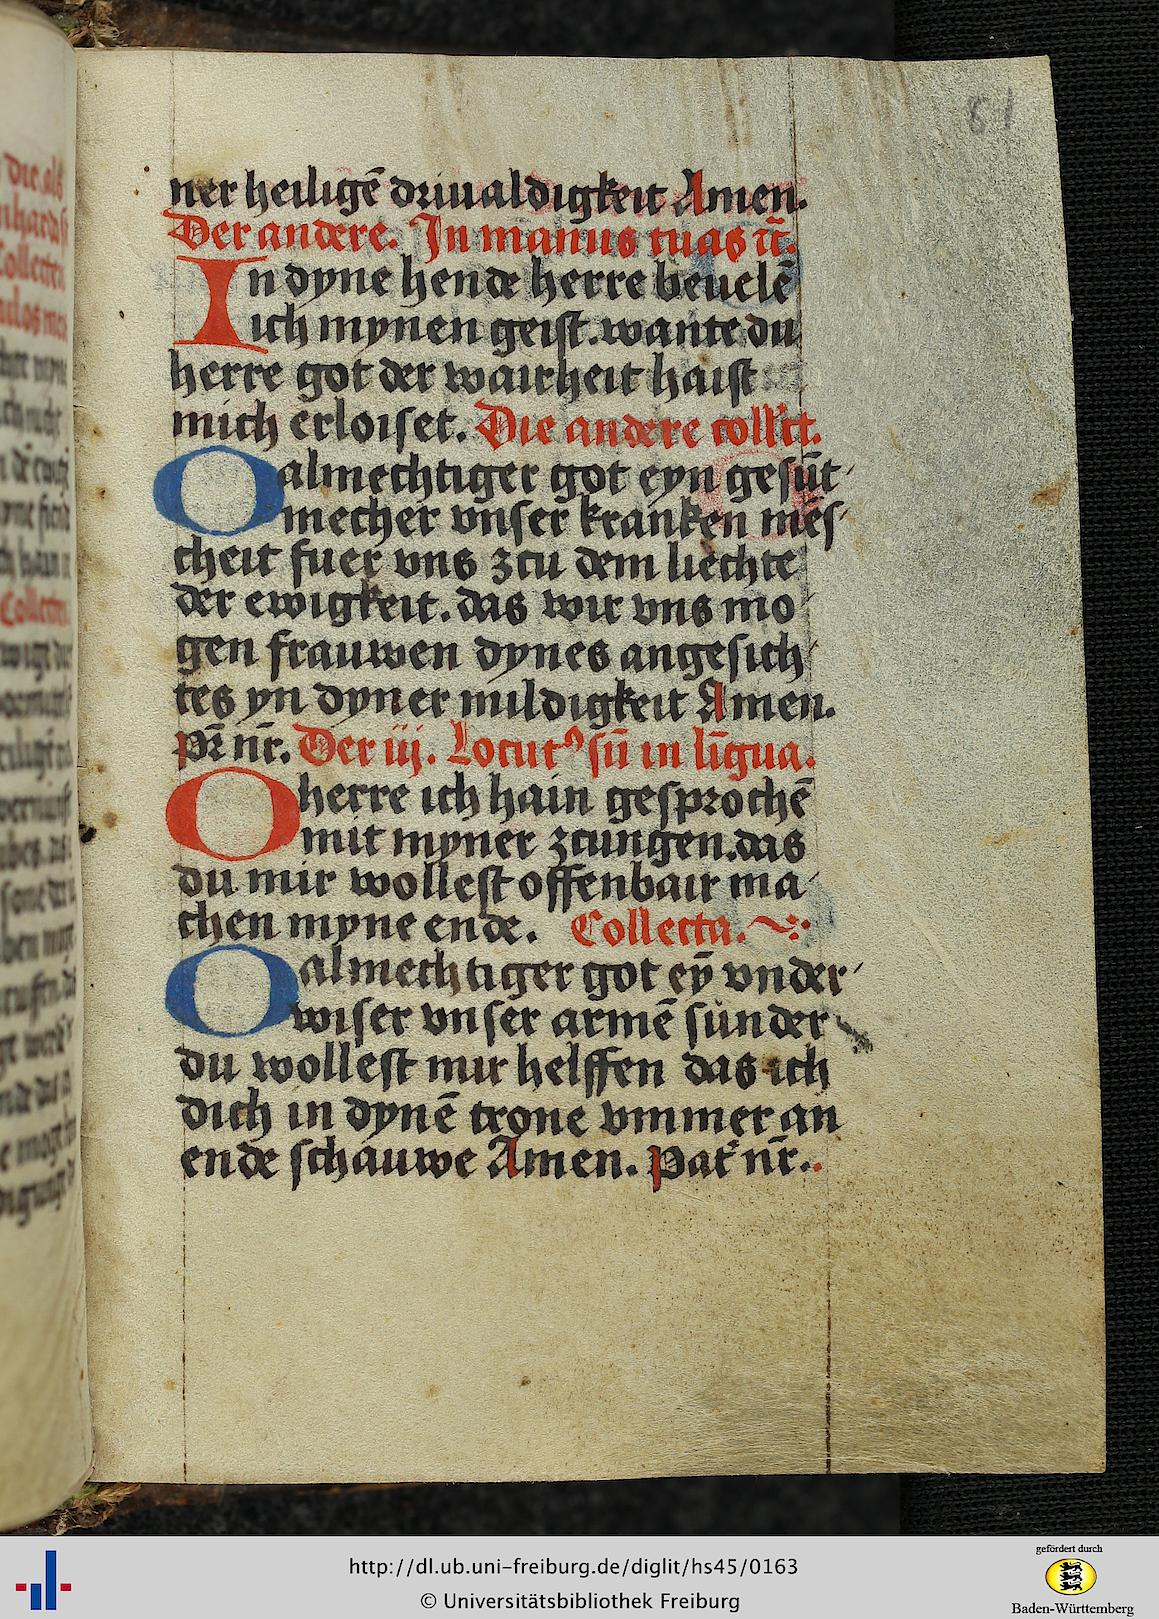 81
ner heiligē driualdigkeit Amen.
Der andere. In manus tuas ⁊c̄.
In dyne hende herre beuelē
ich mynen geist. wante du
herre got der wairheit haist
mich erloiset. Die andere coll'ct.
O almechtiger got eyn gesūt
mecher vnser kranken mēs
cheit fuer vns zcu dem liechte
der ewigkeit. das wir vns mo
gen frauwen dynes angesich
tes yn dyner mildigkeit Amen.
Pr̄ nr̄. Der iij. Locut⁹ sū in līgua.
O herre ich hain gesprochē
mit myner zcungen. das
du mir wollest offenbair ma
chen myne ende. Collecta.
O almechtiger got eȳ vnder
wiser vnser armē sunder
du wollest mir helffen das ich
dich in dynē trone vmmer an
ende schauwe Amen. Pat' nr̄.
http://dl.ub.uni-freiburg.de/diglit/hs45/0163
© Universitätsbibliothek Freiburg
gefördert durch
Baden-Württemberg